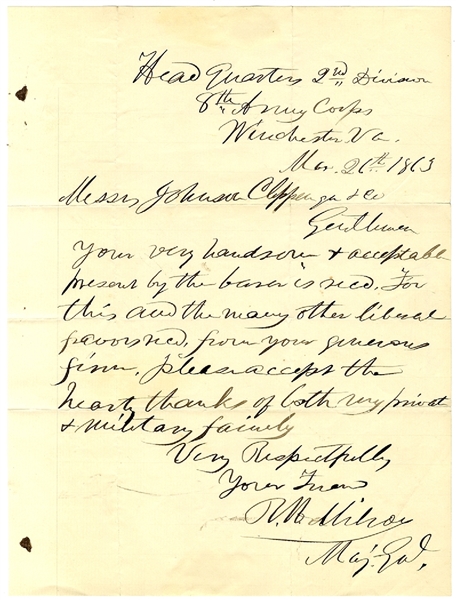 Head Quarters 2nd Division
8th Army Corps
Winchester Va.
Mar. 26th 1863
Messrs Johnson Clippinger & Co
Gentlemen
Your very handsome & acceptable
present by the bearer is recd. For
this and the many other liberal
favors recd. from your generous
firm, please accept the
hearty thanks of both my private
& military family
Very Respectfully
Your Friend
R. H. Milroy
Maj. Genl.